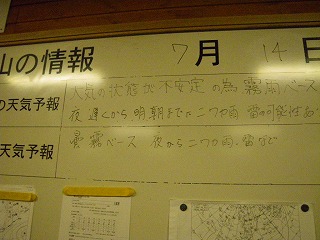 山の情報 7月 14日
の天気予報 大気の状態が不安定の為 霧雨ベース
夜遅くから明朝までにわか雨 雷の可能性あり
天気予報 曇霧ベース 夜からにわか雨・雷など